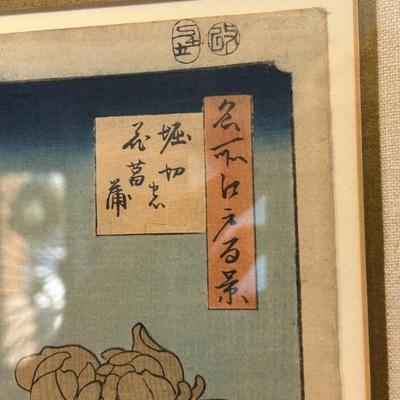 改
名所江戸百景
堀切の
花菖蒲